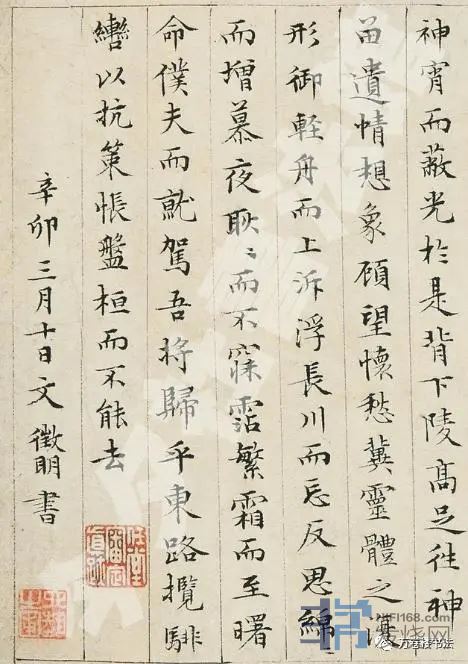 神宵而蔽光於是背下陵高足往神
留遺情想象顧望懷愁冀靈體之復
形御輕舟而上泝浮長川而忘反思綿〻
而增慕夜耿〻而不寐霑繁霜而至曙
命僕夫而就駕吾將歸乎東路攬騑
轡以抗策悵盤桓而不能去
辛卯三月十日文徵明書
HIFI168.com
发烧网